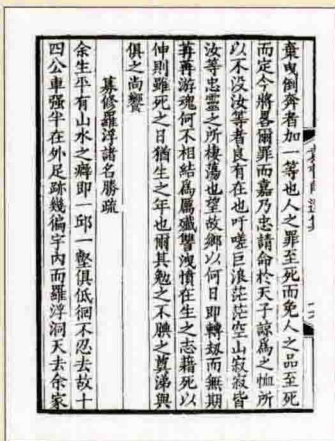 棄曳倒奔者加一等也人之罪至死而免人之品至死
而定今將畧爾罪而嘉乃忠請命於天子諒為之恤所
以不没汝等者良有在也吁嗟巨浪茫茫空山寂寂皆
汝等忠靈之所棲蕩也望故鄉以何日即轉刼而無期
苒苒游魂何不相結為厲殲讐洩憤在生之志藉死以
伸則雖死之日猶生之年也爾其勉之不腆之奠涕與
俱之尚饗
募修羅浮諸名勝疏
余生平有山水之癖即一邱一壑俱低徊不忍去故十
四公車强半在外足跡幾徧宇內而羅浮洞天去余家